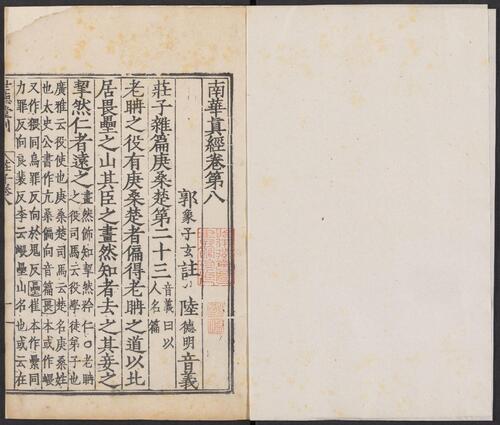 南華真經卷第八
郭象子玄註 陸德明音義
莊子雜篇庚桑楚第二十三 音義曰以人名篇
老聃之役有庚桑楚者偏得老聃之道以北
居畏壘之山其臣之畫然知者去之其妾之
挈然仁者遠之 畫然飾知挈然矜仁○老聃之役司馬云役學徒弟子也
廣雅云役使也庚桑楚司馬云楚名庚桑姓
也太史公書作亢桑偏向音篇畏本或作嵔
又作猥同烏罪反向於鬼反壘崔本作纍同
力罪反向良裴反李云嵔壘山名也或云在